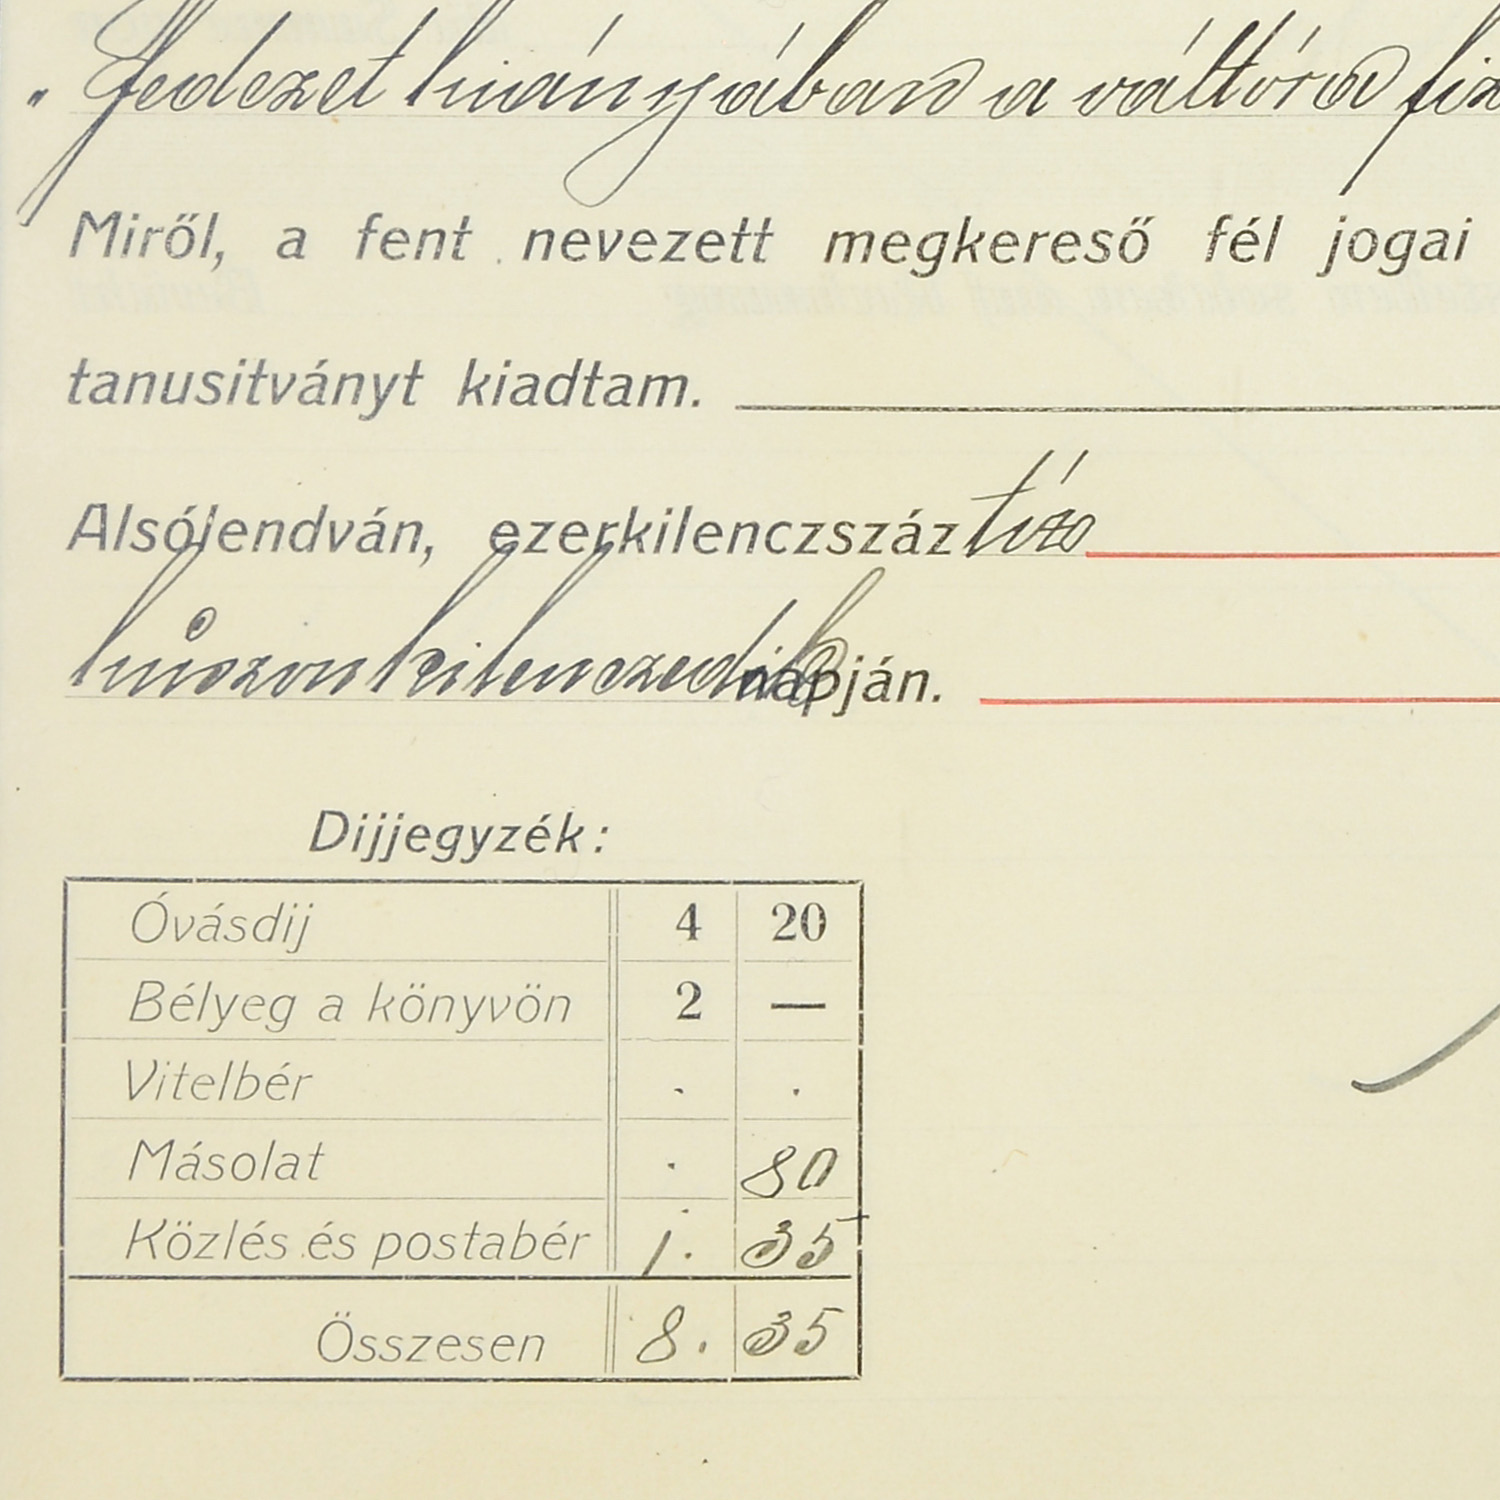 „fedezet hiányában a váltóra fiz
Miről, a fent nevezett megkereső fél jogai
tanusitványt kiadtam.
Alsólendván, ezerkilenczszáz tíz
húszonkilenczedik napján.
Dijjegyzék:
Óvásdij 4 20
Bélyeg a könyvön 2 —
Vitelbér . .
Másolat . 80
Közlés és postabér 1. 35
Összesen 8. 35